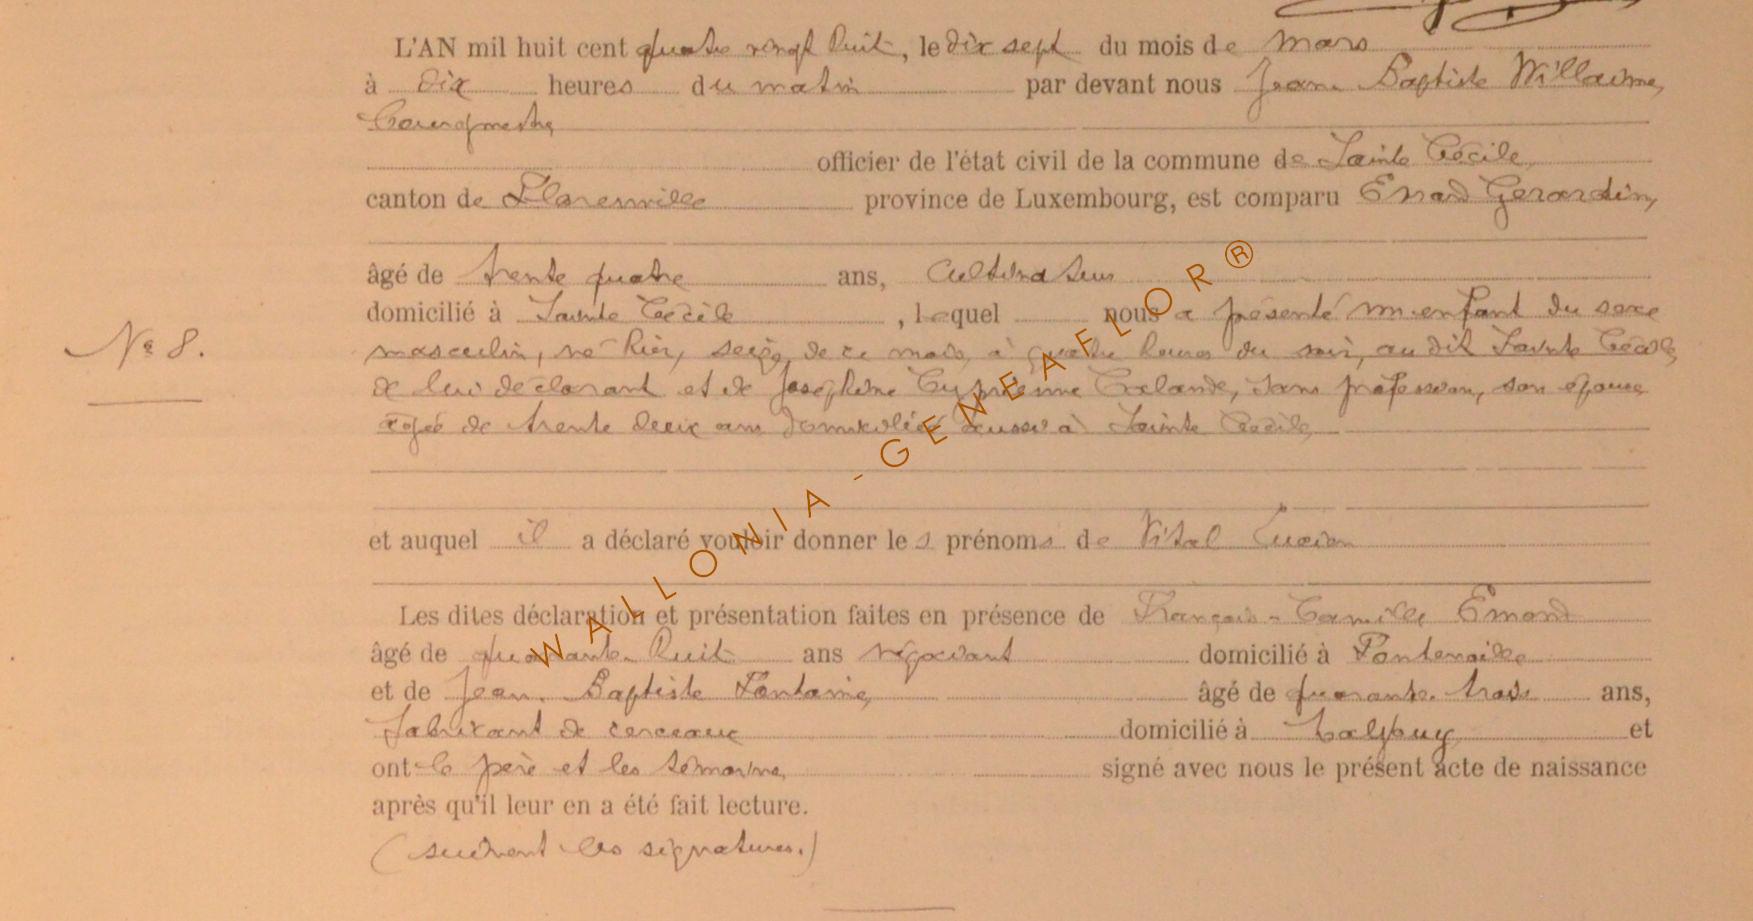 L'AN mil huit cent quatre vingt huit, le dix sept du mois de mars
à dix heures du matin par devant nous Jean Baptiste Willaime,
bourgmestre
officier de l'état civil de la commune de Sainte Cécile
canton de Florenville province de Luxembourg, est comparu Gerardin,
âgé de trente quatre ans, cultivateur
domicilié à Sainte Cécile, lequel nous a présenté un enfant du sexe
Nº 8.
masculin, né hier, seize de ce mois, à quatre heures du soir, au dit Sainte Cécile,
de lui déclarant et de Joséphine Cyprienne Calande, sans profession, son épouse
agée de trente deux ans domiciliée aussi à Sainte Cécile
et auquel il a déclaré vouloir donner les prénoms de Vital Lucien
Les dites déclaration et présentation faites en présence de François-Camille Emond
âgé de quarante-huit ans négociant domicilié à Fontenoille
et de Jean-Baptiste Fontaine, âgé de quarante-trois ans,
fabricant de cerceaux domicilié à et
ont le père et les témoins, signé avec nous le présent acte de naissance
après qu'il leur en a été fait lecture.
(suivent les signatures.)
WALLONIA - GENEAFLOR ®